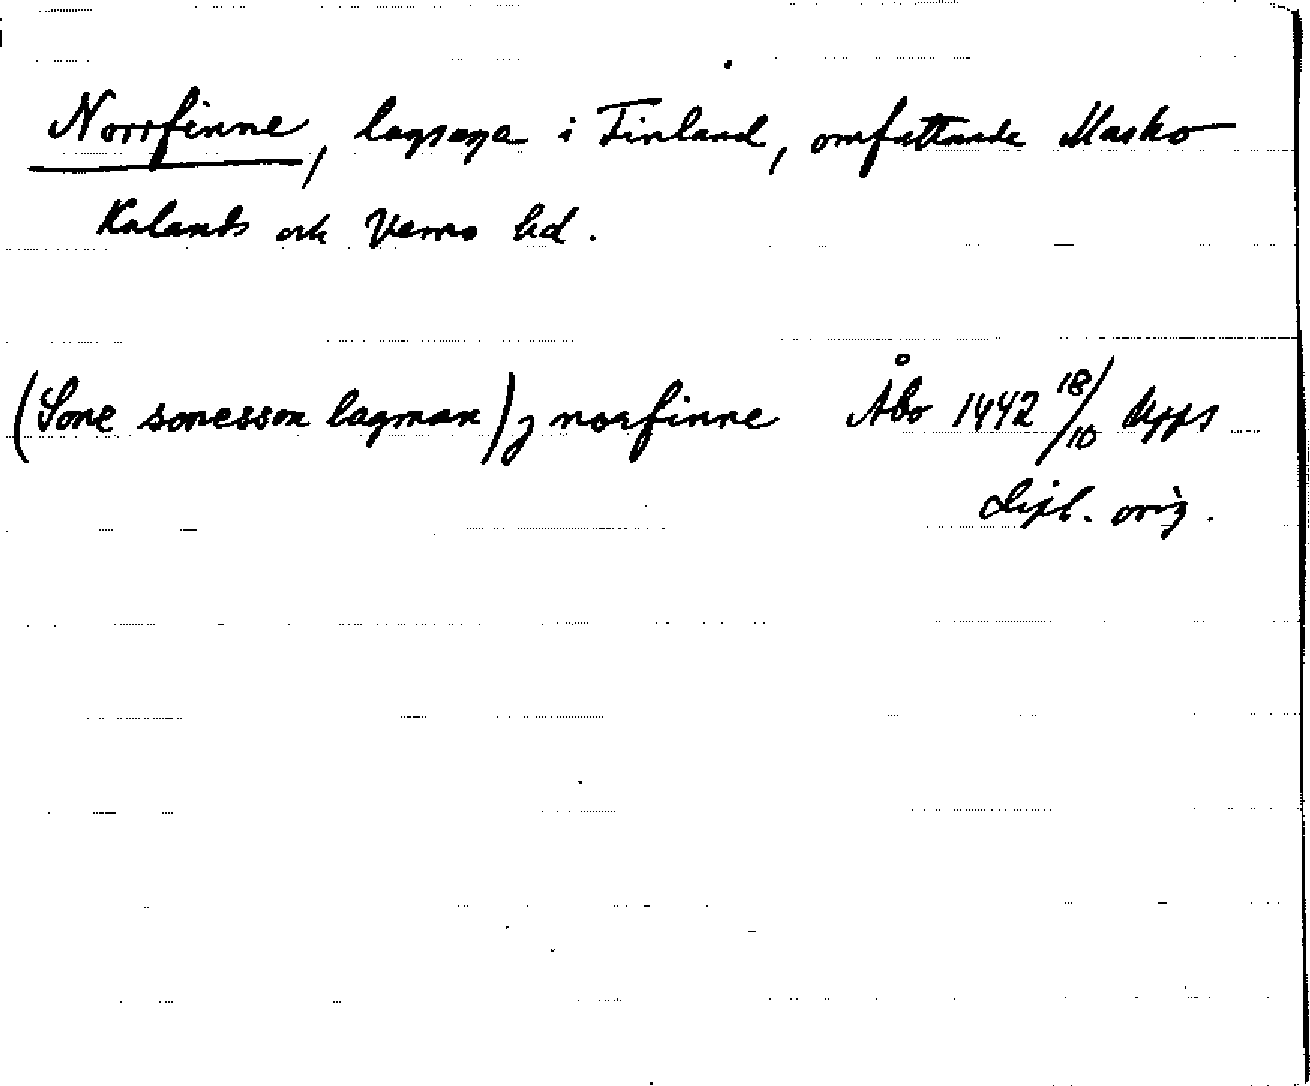 Norrfinne, lagsaga i Finland, omfattande Masko
Kalands och Vemo hd.
(Sone sonesson lagman) j norfinne Åbo 1442 18/10 Upps
dipl. orig.